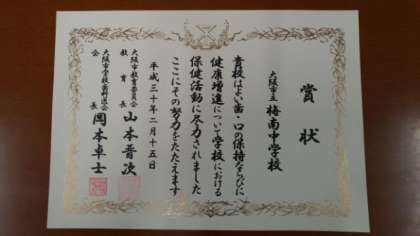 賞状
大阪市立 梅南中学校
貴校はよい歯・口の保持ならびに
健康増進について学校における
保健活動に尽力されました
ここにその努力をたたえます
平成三十年二月十五日
大阪市教育委員会
教育長 山本晋次
大阪市学校歯科医会
会長 岡本卓士